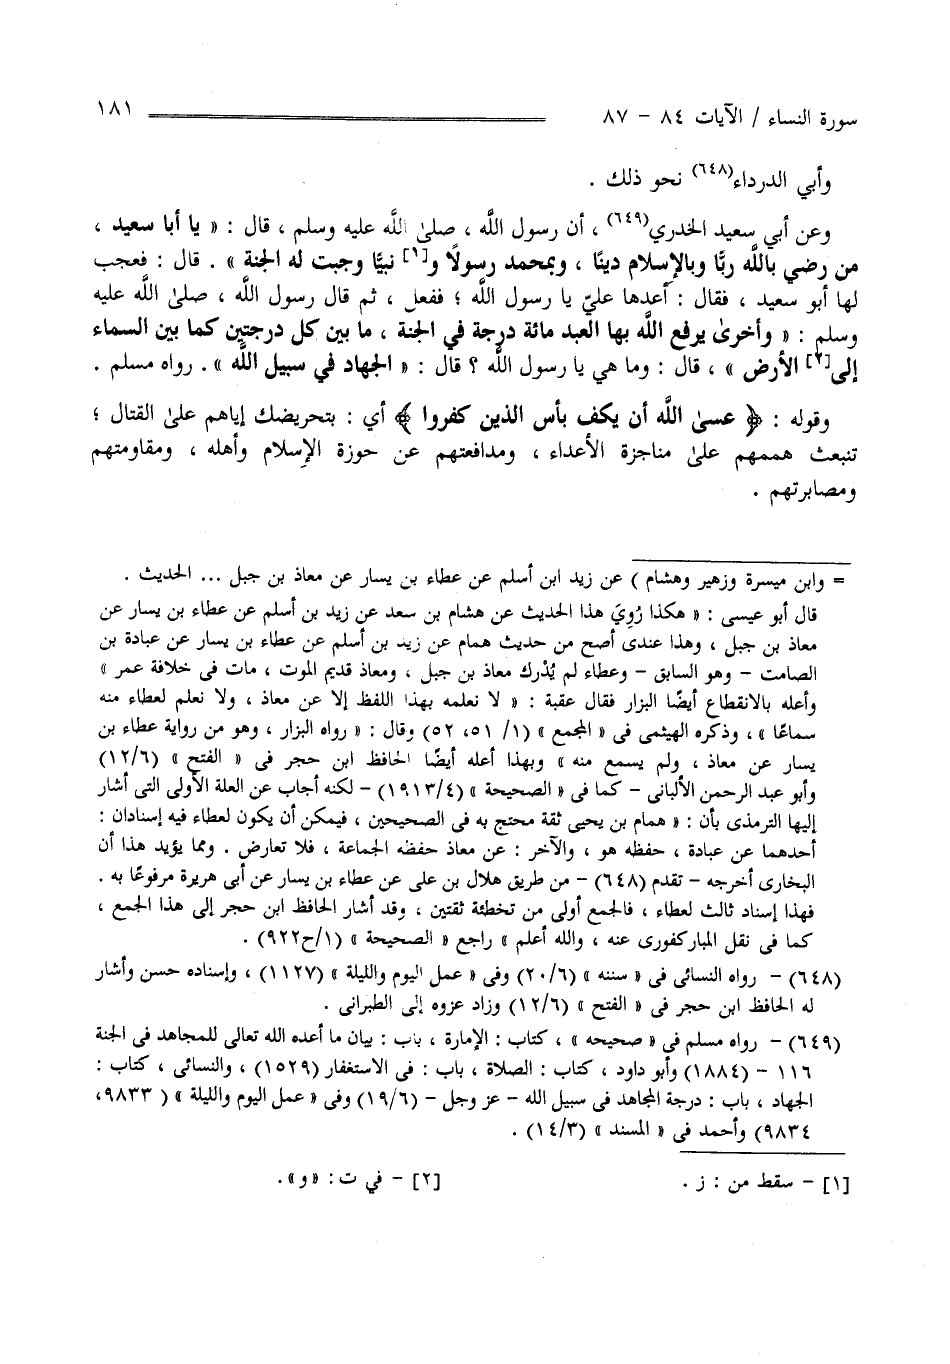 سورة النساء / الآيات ٨٤ - ٨٧ ١٨١
وأبي الدرداء(٦٤٨) نحو ذلك .
وعن أبي سعيد الخدري(٦٤٩) ، أن رسول اللَّه ، صلىٰ اللَّه عليه وسلم ، قال : « يا أبا سعيد ،
من رضي باللَّه ربًّا وبالإسلام دينًا ، وبمحمد رسولًا و[١] نبيًّا وجبت له الجنة » . قال : فعجب
لها أبو سعيد ، فقال : أعدها عليّ يا رسول اللَّه ؛ ففعل ، ثم قال رسول اللَّه ، صلىٰ اللَّه عليه
وسلم : « وأخرىٰ يرفع اللَّه بها العبد مائة درجة في الجنة ، ما بين كل درجتين كما بين السماء
إلى[٢] الأرض » ، قال : وما هي يا رسول اللَّه ؟ قال : « الجهاد في سبيل اللَّه » . رواه مسلم .
وقوله : ﴿ عسىٰ اللَّه أن يكف بأس الذين كفروا ﴾ أي : بتحريضك إياهم علىٰ القتال ؛
تنبعث هممهم علىٰ مناجزة الأعداء ، ومدافعتهم عن حوزة الإسلام وأهله ، ومقاومتهم
ومصابرتهم .
= وابن ميسرة وزهير وهشام ) عن زيد ابن أسلم عن عطاء بن يسار عن معاذ بن جبل ... الحديث .
قال أبو عيسى : « هكذا رُوِيَ هذا الحديث عن هشام بن سعد عن زيد بن أسلم عن عطاء بن يسار عن
معاذ بن جبل ، وهذا عندى أصح من حديث همام عن زيد بن أسلم عن عطاء بن يسار عن عبادة بن
الصامت - وهو السابق - وعطاء لم يُدْرك معاذ بن جبل ، ومعاذ قديم الموت ، مات فى خلافة عمر »
وأعله بالانقطاع أيضًا البزار فقال عقبة : « لا نعلمه بهذا اللفظ إلا عن معاذ ، ولا نعلم لعطاء منه
سماعًا » ، وذكره الهيثمى فى « المجمع » (١/ ٥١، ٥٢) وقال : « رواه البزار ، وهو من رواية عطاء بن
يسار عن معاذ ، ولم يسمع منه » وبهذا أعله أيضًا الحافظ ابن حجر فى « الفتح » (١٢/٦)
وأبو عبد الرحمن الألبانى - كما فى « الصحيحة » (١٩١٣/٤) - لكنه أجاب عن العلة الأولى التى أشار
إليها الترمذى بأن : « همام بن يحيى ثقة محتج به فى الصحيحين ، فيمكن أن يكون لعطاء فيه إسنادان :
أحدهما عن عبادة ، حفظه هو ، والآخر : عن معاذ حفضه الجماعة ، فلا تعارض . ومما يؤيد هذا أن
البخارى أخرجه - تقدم (٦٤٨) - من طريق هلال بن على عن عطاء بن يسار عن أبى هريرة مرفوعًا به .
فهذا إسناد ثالث لعطاء ، فالجمع أولى من تخطئة ثقتين ، وقد أشار الحافظ ابن حجر إلى هذا الجمع ،
كما فى نقل المباركفورى عنه ، والله أعلم » راجع « الصحيحة » (١/ح٩٢٢) .
(٦٤٨) - رواه النسائى فى « سننه » (٢٠/٦) وفى « عمل اليوم والليلة » (١١٢٧) ، وإسناده حسن وأشار
له الحافظ ابن حجر فى « الفتح » (١٢/٦) وزاد عزوه إلى الطبرانى .
(٦٤٩) - رواه مسلم فى « صحيحه » ، كتاب : الإمارة ، باب : بيان ما أعده الله تعالى للمجاهد فى الجنة
١١٦ - (١٨٨٤) وأبو داود ، كتاب : الصلاة ، باب : فى الاستغفار (١٥٢٩) ، والنسائى ، كتاب :
الجهاد ، باب : درجة المجاهد فى سبيل الله - عز وجل - (١٩/٦) وفى « عمل اليوم والليلة » ( ٩٨٣٣،
٩٨٣٤) وأحمد فى « المسند » (١٤/٣) .
[١] - سقط من : ز . [٢] - في ت : «و» .